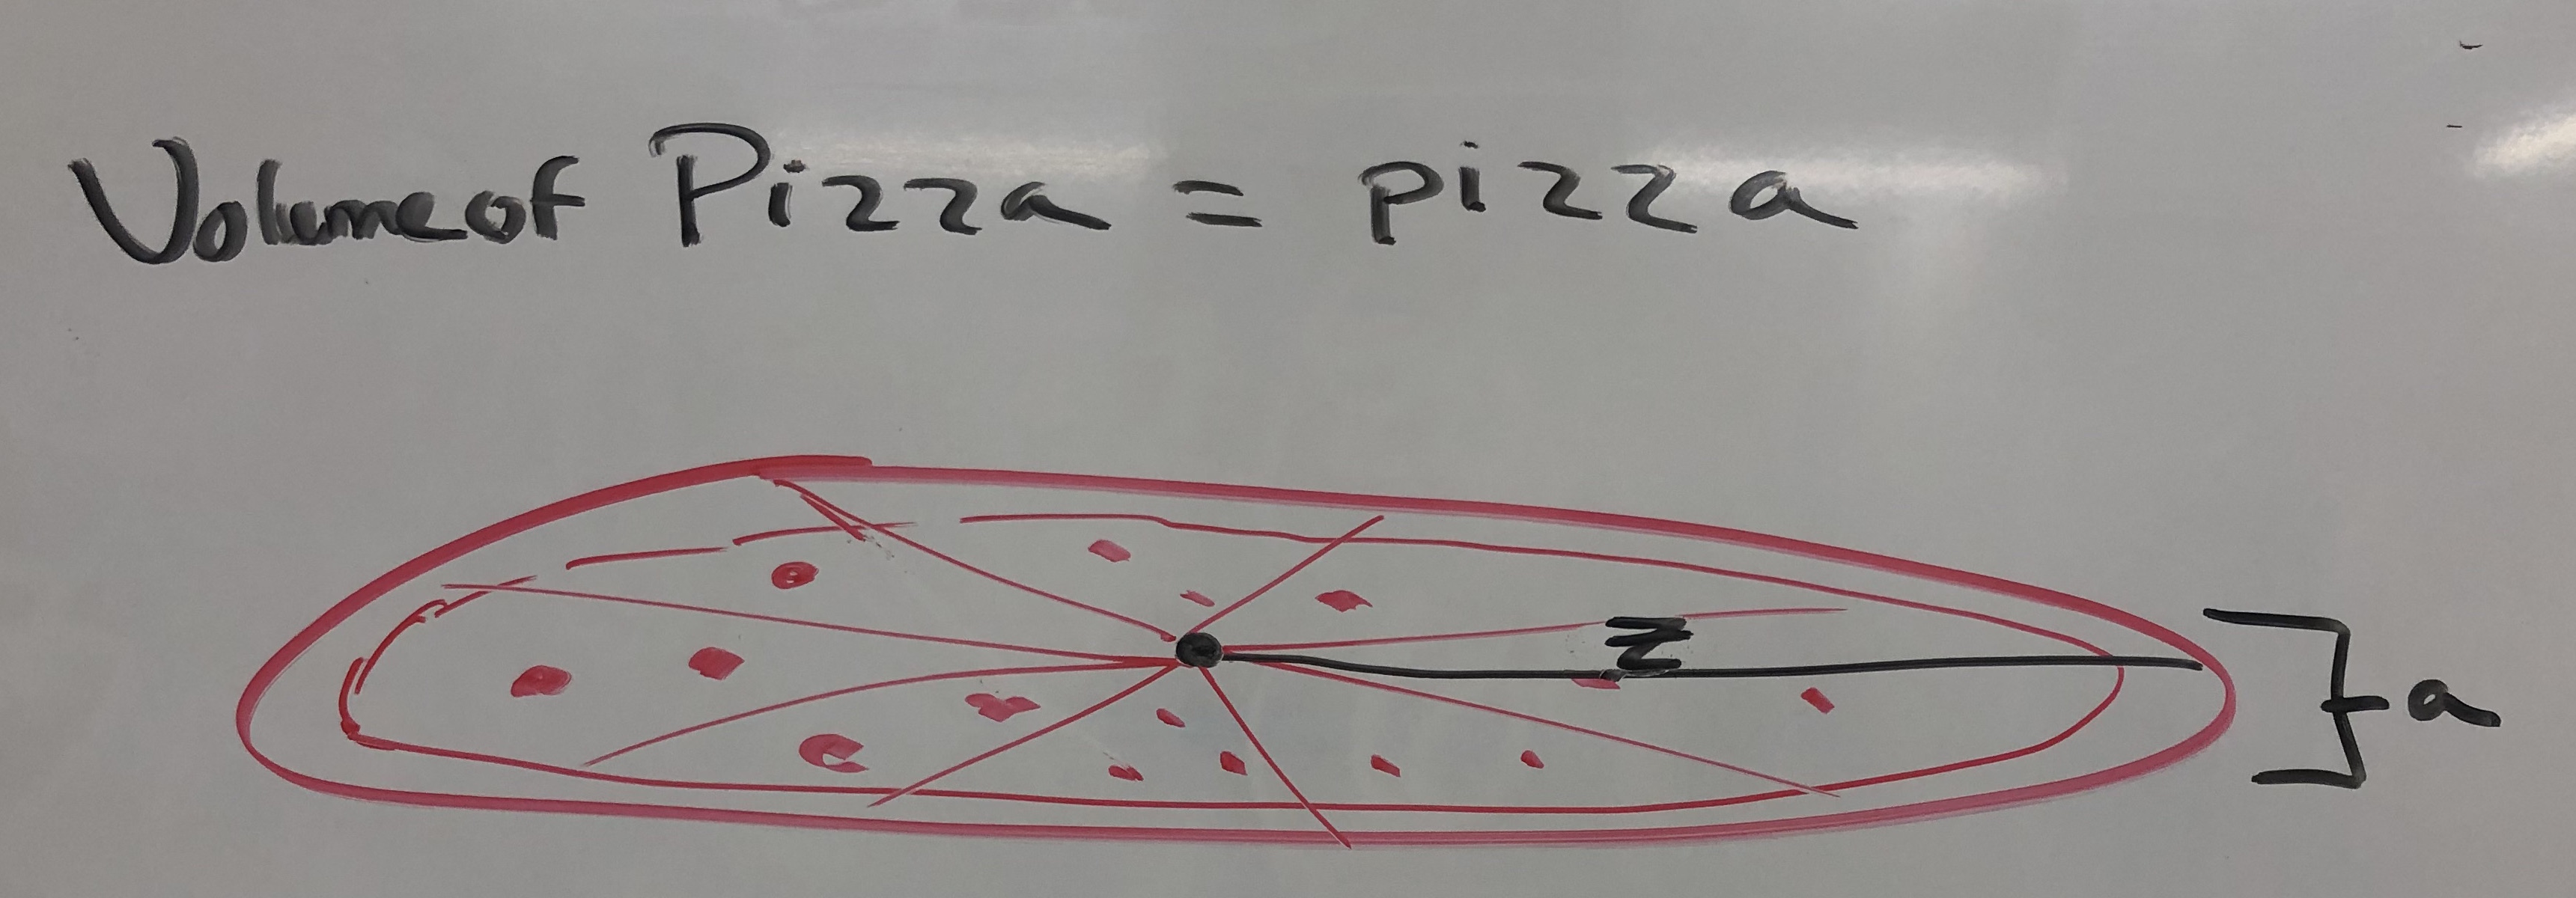 Volume of Pizza = pizza
z
a